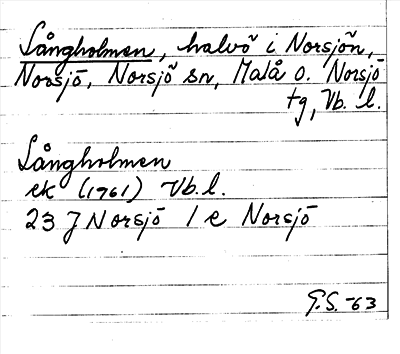 Långholmen, halvö i Norsjön,
Norsjö, Norsjö sn, Malå o. Norsjö
tg, Vb. l.
Långholmen
ek (1961) Vb. l.
23 J Norsjö 1 e Norsjö
G.S. -63